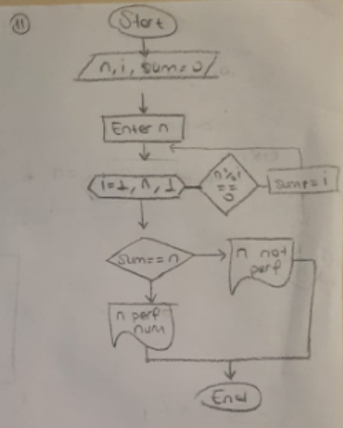 11
Start
n, i, sum=0
Enter n
i=1, n, 1
n%i
==
0
sum+=i
sum==n
n not
perf
n perf
num
End